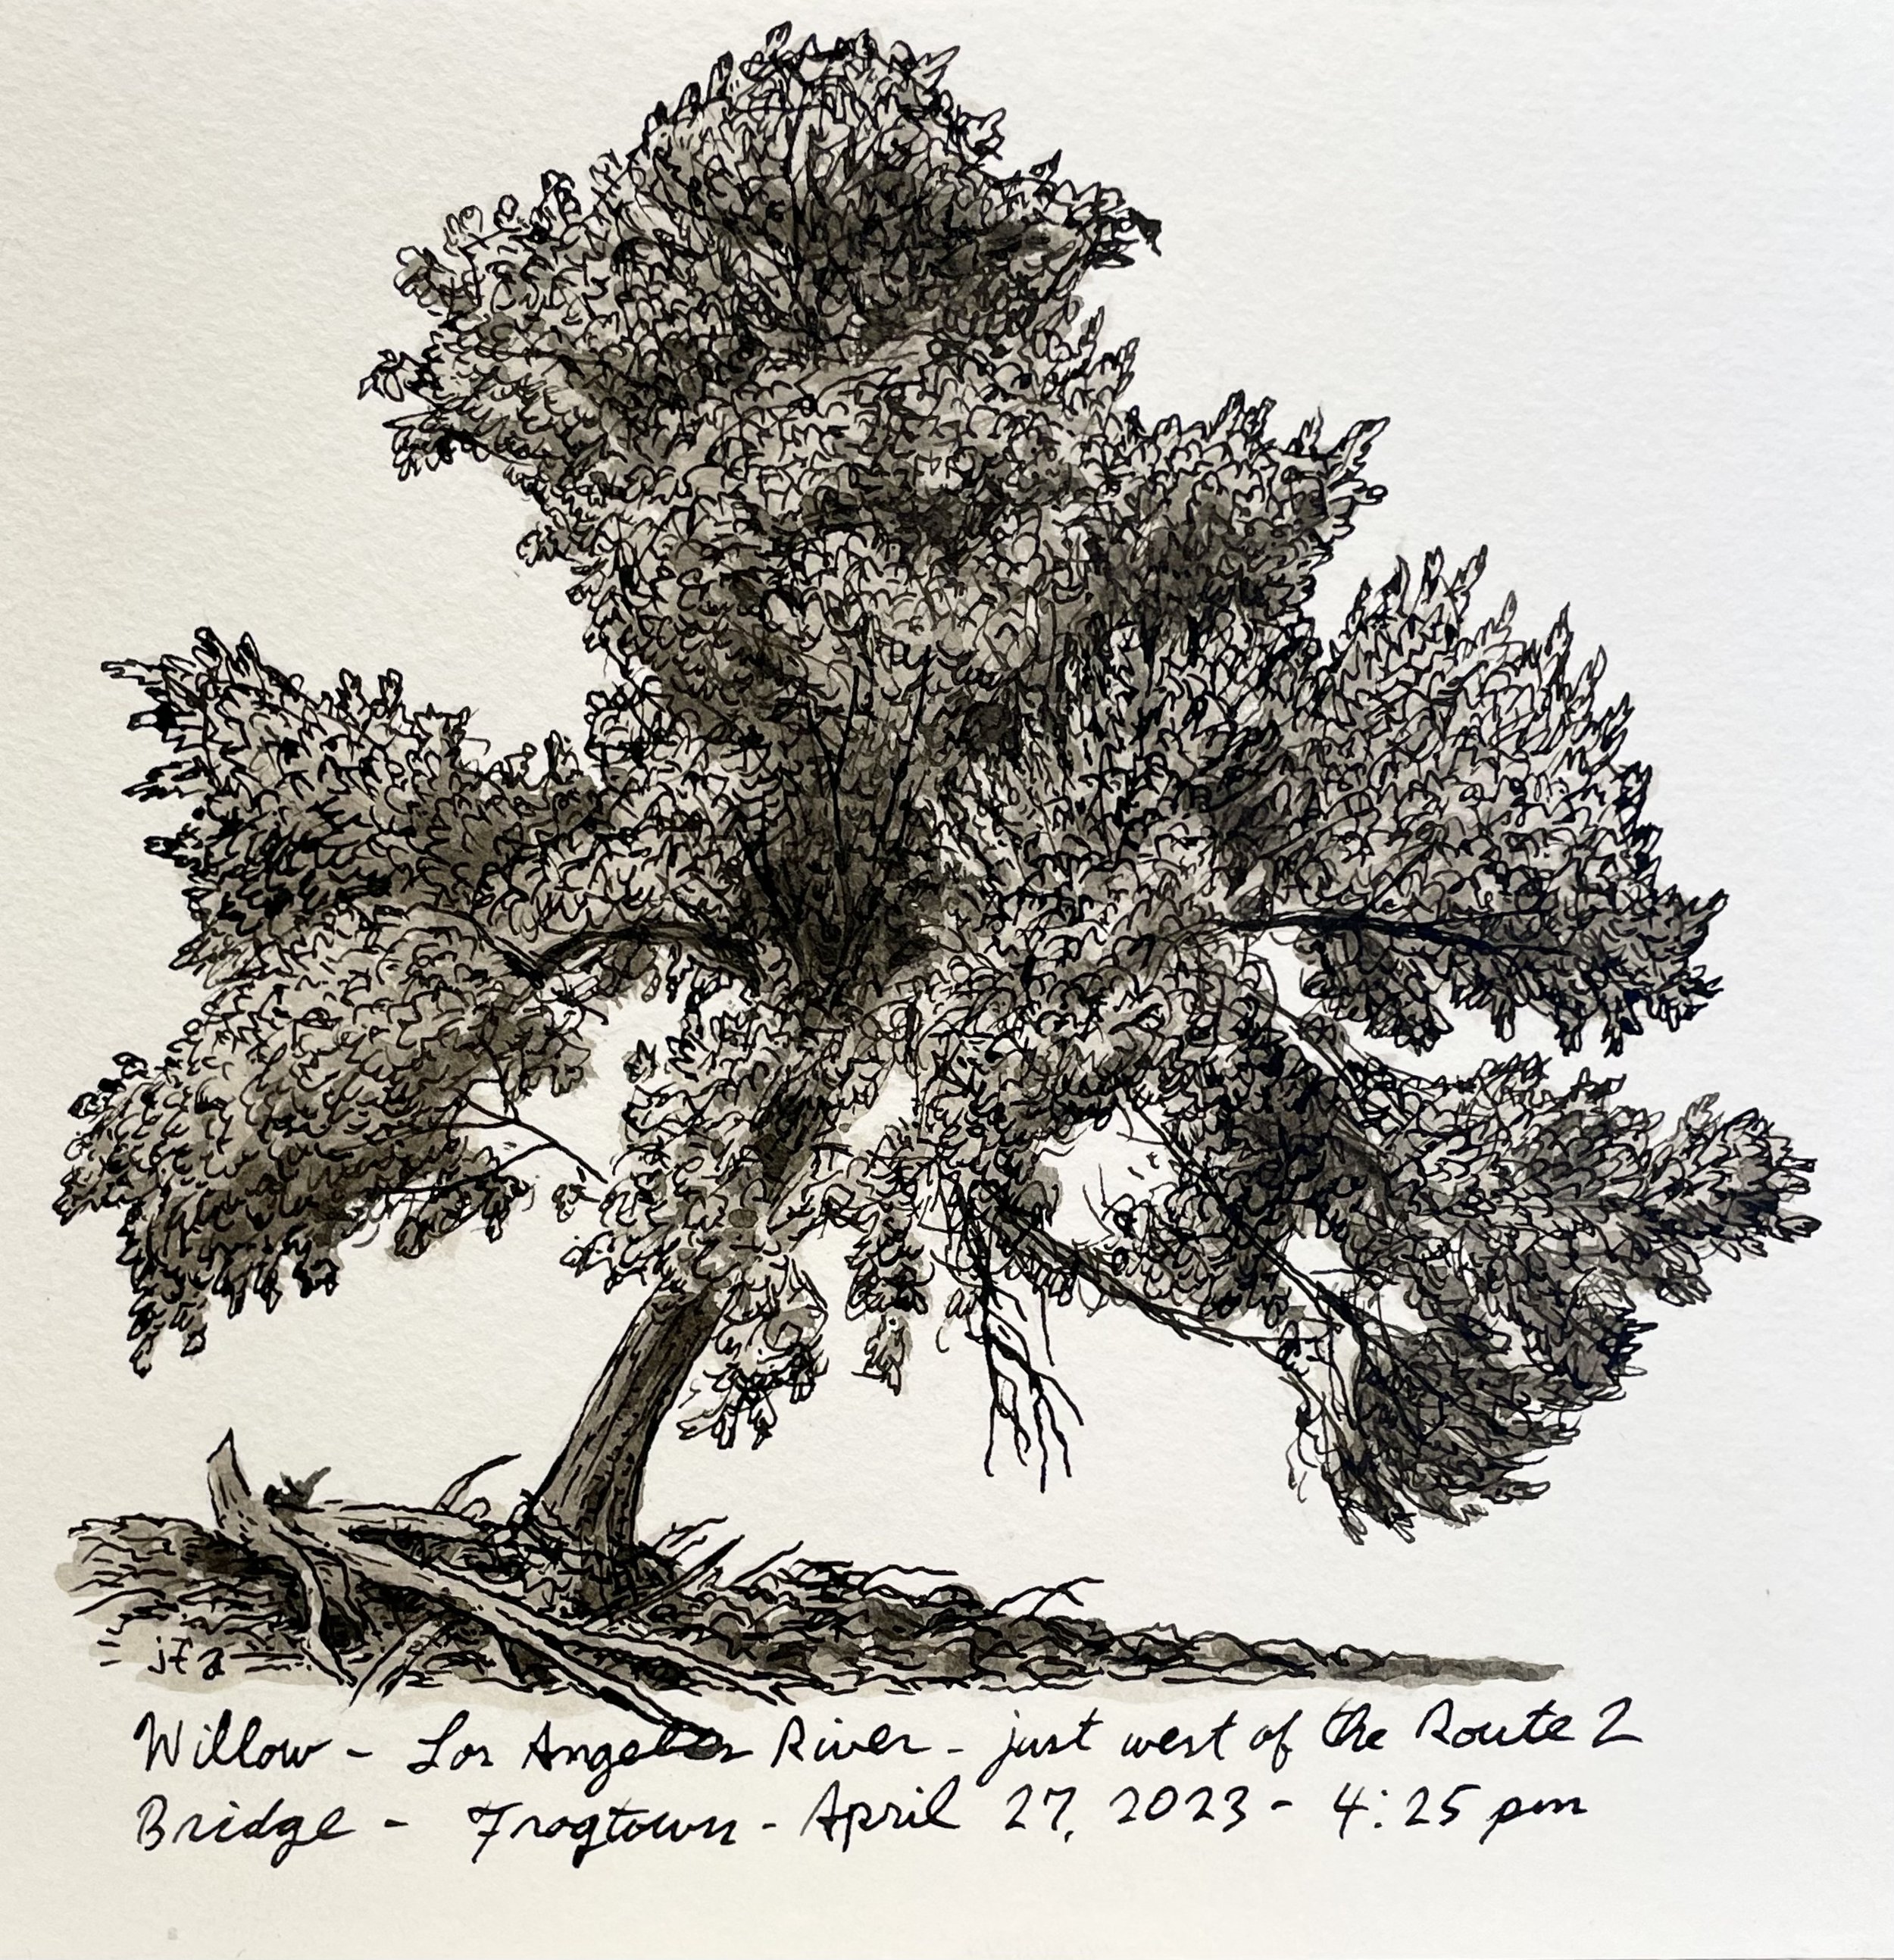 jfa
Willow - Los Angeles River - just west of the Route 2
Bridge - Frogtown - April 27, 2023 - 4:25 pm